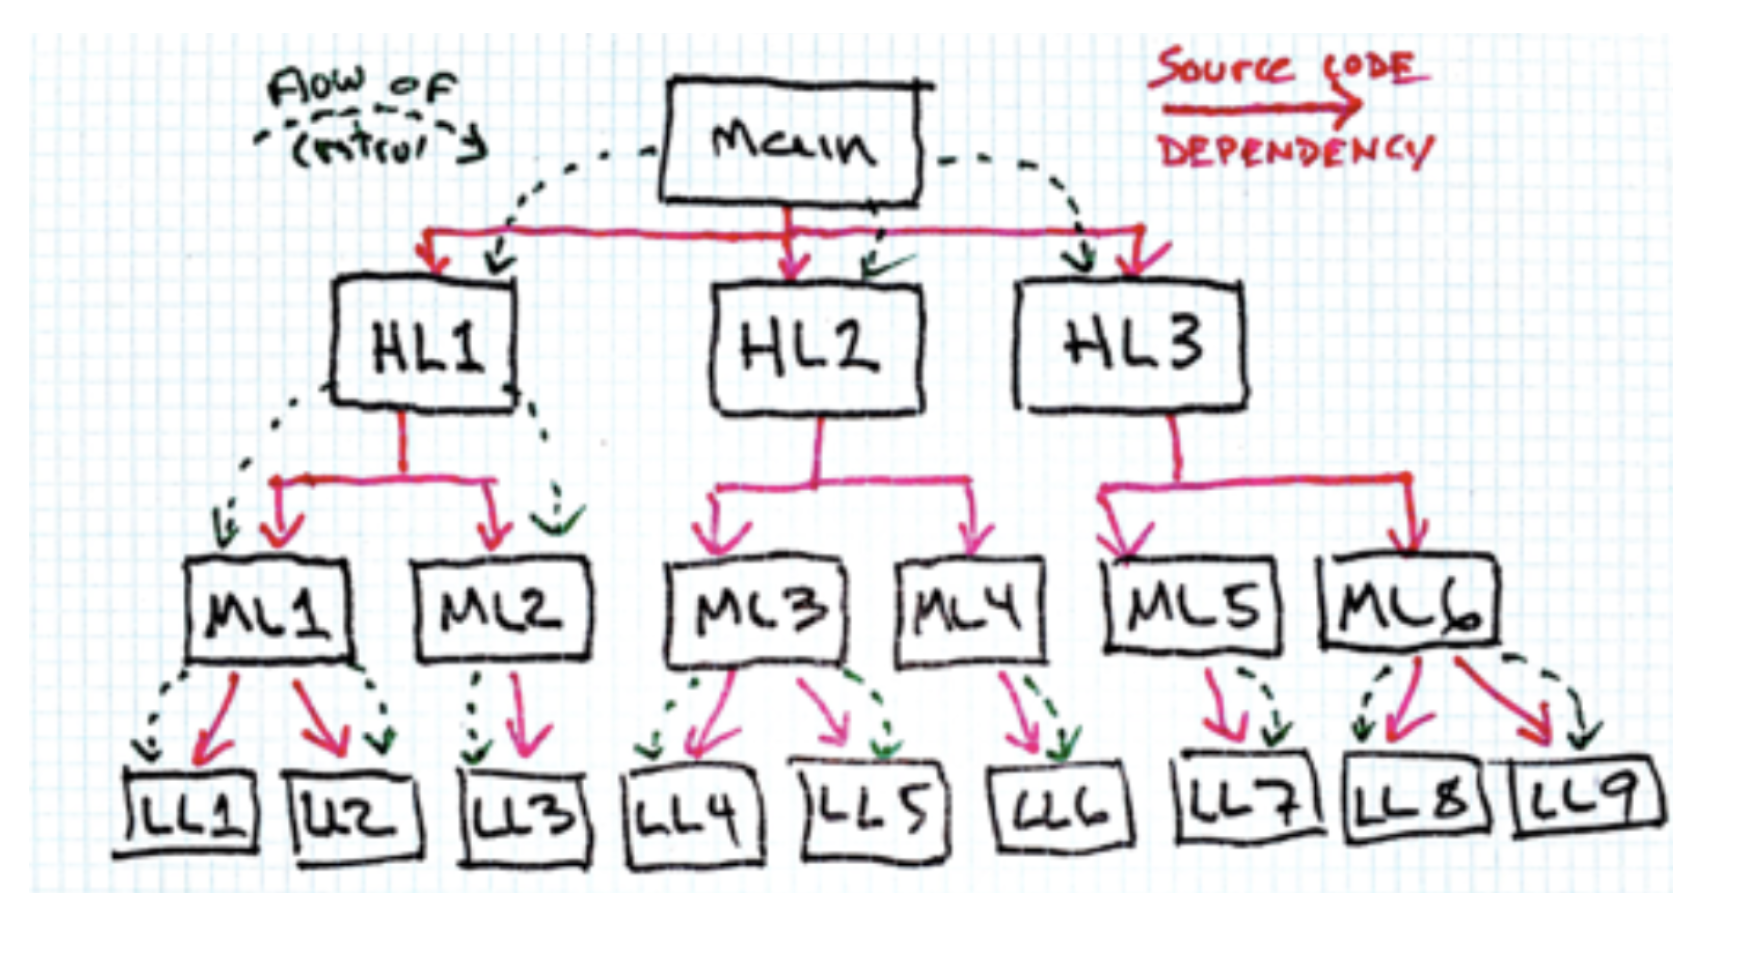 flow of
control
Source CODE
DEPENDENCY
Main
HL1
HL2
HL3
ML1
ML2
ML3
ML4
ML5
ML6
LL1
LL2
LL3
LL4
LL5
LL6
LL7
LL8
LL9